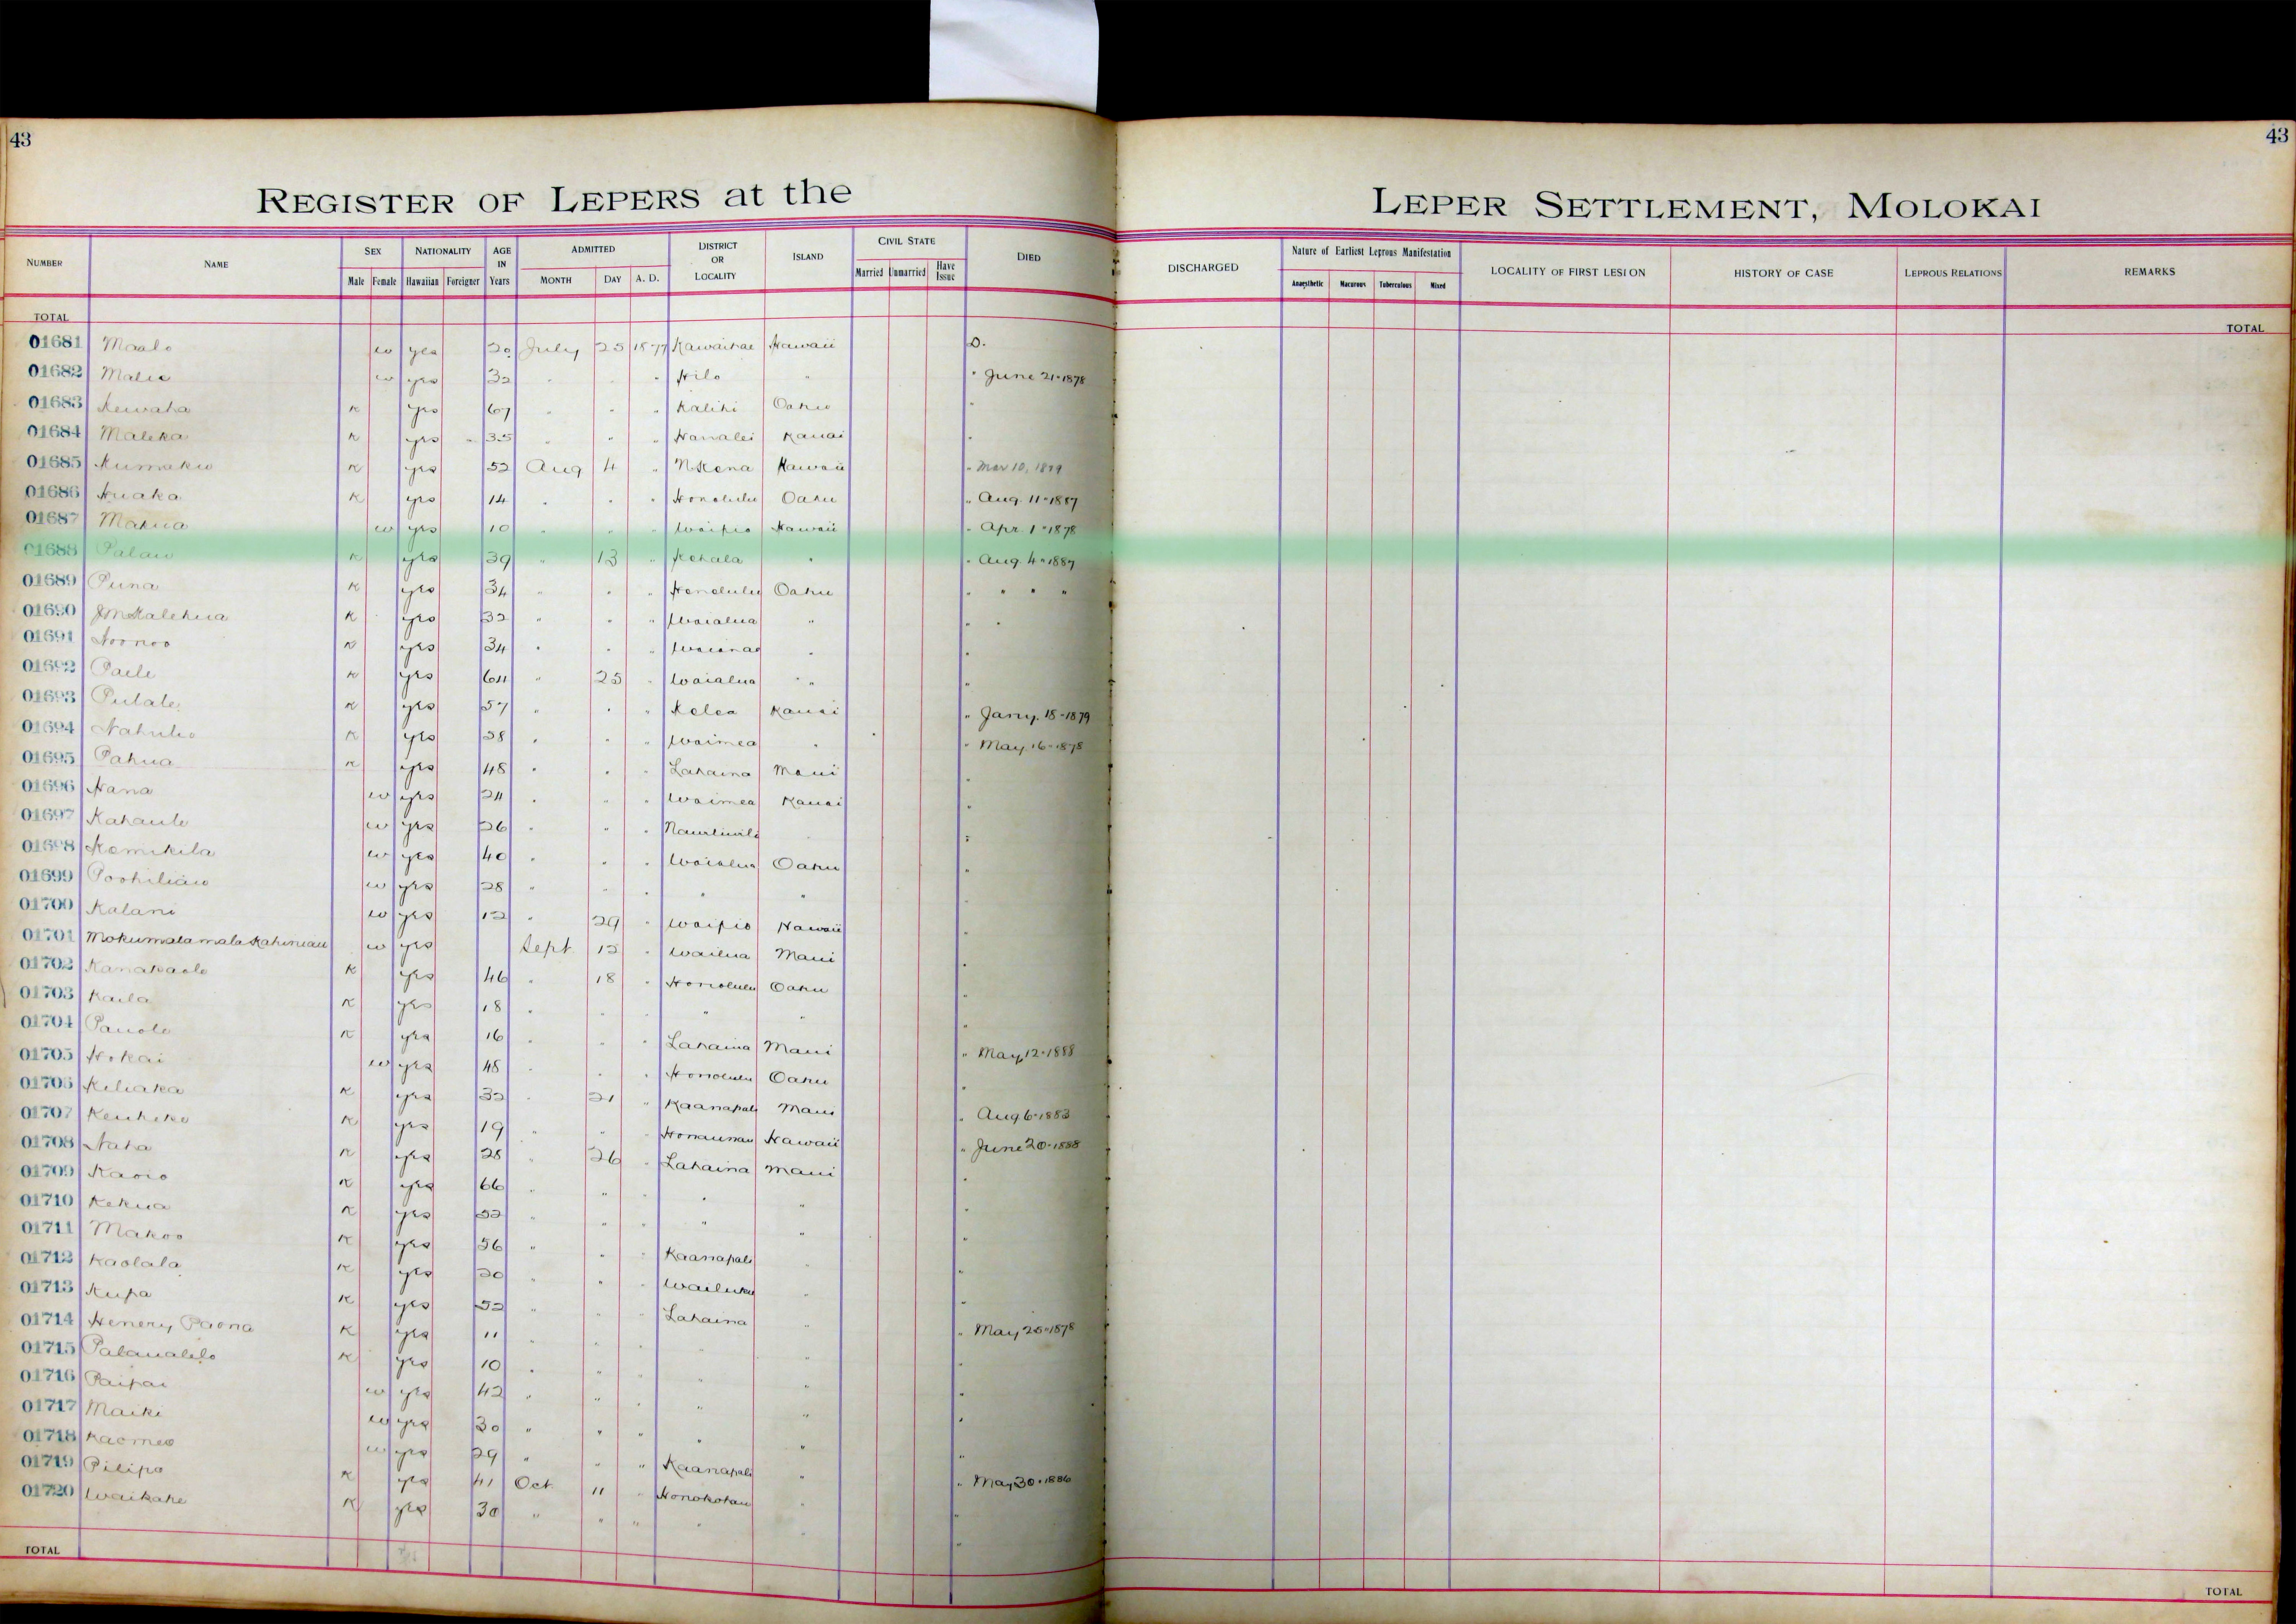 43
43
REGISTER OF LEPERS at the
LEPER SETTLEMENT, MOLOKAI
NUMBER NAME SEX NATIONALITY AGE IN Years ADMITTED DISTRICT OR LOCALITY ISLAND CIVIL STATE DIED
Male Female Hawaiian Foreigner MONTH DAY A. D. Married Unmarried Have Issue
DISCHARGED Nature of Earliest Leprous Manifestation LOCALITY OF FIRST LESION HISTORY OF CASE LEPROUS RELATIONS REMARKS
Anaesthetic Macurous Tuberculous Mixed
TOTAL TOTAL
01681 Maalo w yes 20 July 25 1877 Kawaihae Hawaii D.
01682 Malie w yes 32 " " " Hilo " " June 21-1878
01683 Kewaha K yes 67 " " " Kalihi Oahu "
01684 Maleka K yes 35 " " " Hanalei Kauai "
01685 Kumaku K yes 52 Aug 4 " N Kona Hawaii " Mar 10, 1879
01686 Huaka K yes 14 " " " Honolulu Oahu " Aug. 11-1887
01687 Mahua w yes 10 " " " Waipio Hawaii " Apr. 1-1878
01688 Palau K yes 39 " 13 " Kohala " " Aug. 4-1887
01689 Puna K yes 34 " " " Honolulu Oahu " " " "
01690 J M Kalehua K yes 32 " " " Waialua " " "
01691 Noonoo K yes 34 " " " Waianae " "
01692 Paele K yes 64 " 25 " Waialua " "
01693 Pulale K yes 57 " " " Kolea Kauai " Jany. 18-1879
01694 Nahuho K yes 28 " " " Waimea " " May. 16-1878
01695 Pahua K yes 48 " " " Lahaina Maui "
01696 Hana w yes 24 " " " Waimea Kauai "
01697 Kahaule w yes 26 " " " Nawiliwili "
01698 Kamikila w yes 40 " " " Waialua Oahu "
01699 Poohiliau w yes 28 " " " " " "
01700 Kalani w yes 12 " 29 " Waipio Hawaii "
01701 Mokumalamala Kahiniau w yes Sept 12 " Wailua Maui "
01702 Kanakaole K yes 46 " 18 " Honolulu Oahu "
01703 Kaila K yes 18 " " " " " "
01704 Pauole K yes 16 " " " Lahaina Maui " May, 12-1888
01705 Hokai w yes 48 " " " Honolulu Oahu "
01706 Keliaka K yes 32 " 21 " Kaanapali Maui " Aug 6-1883
01707 Keuheke K yes 19 " " " Honaunau Hawaii " June 20-1888
01708 Naha K yes 28 " 26 " Lahaina Maui "
01709 Kaoio K yes 66 " " " " " "
01710 Kekua K yes 52 " " " " " "
01711 Makoo K yes 56 " " " Kaanapali " "
01712 Kaolala K yes 20 " " " Wailuku " "
01713 Kupa K yes 52 " " " Lahaina " " May 25-1878
01714 Henery Paona K yes 11 " " " " " "
01715 Palaualelo K yes 10 " " " " " "
01716 Paipai w yes 42 " " " " " "
01717 Maiki w yes 30 " " " " " "
01718 Kaomeo w yes 29 " " " Kaanapali " " May 30-1886
01719 Pilipo K yes 41 Oct. 11 " Honokohau " "
01720 Waikahe K yes 30 " " " " " "
TOTAL TOTAL